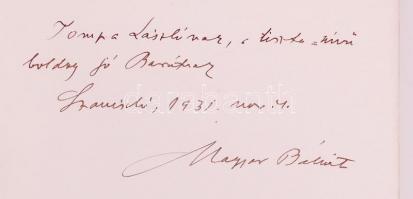 Tompa Lászlónak, a tiszta szívű
boldog jó Barátnak
1931. nov. 4.
Magyar Bálint
darabanth